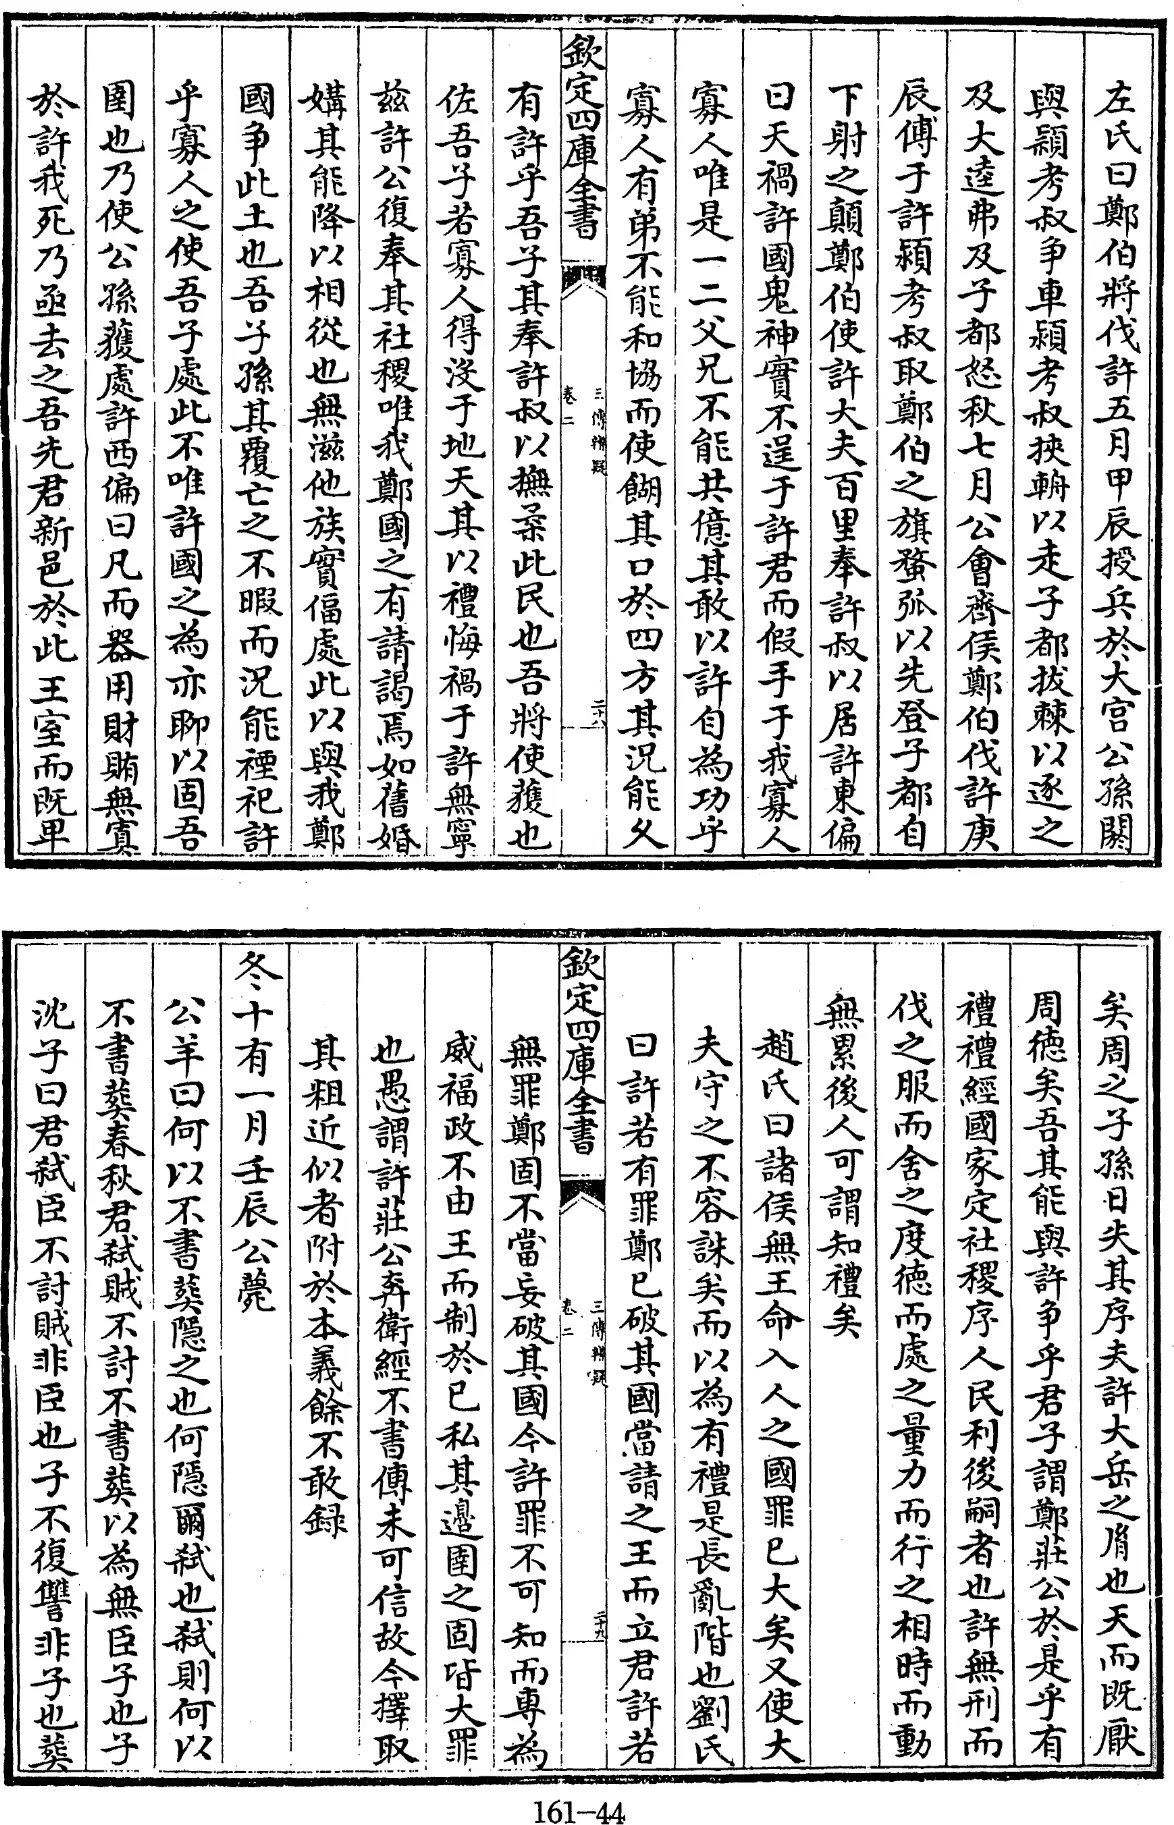 左氏曰鄭伯將伐許五月甲辰授兵於大宫公孫閼
與潁考叔爭車潁考叔挾輈以走子都拔棘以逐之
及大逵弗及子都怒秋七月公會齊侯鄭伯伐許庚
辰傅于許潁考叔取鄭伯之旗蝥弧以先登子都自
下射之顛鄭伯使許大夫百里奉許叔以居許東偏
曰天禍許國鬼神實不逞于許君而假手于我寡人
寡人唯是一二父兄不能共億其敢以許自為功乎
寡人有弟不能和協而使餬其口於四方其況能久
欽定四庫全書
三傳辨疑
卷二
二十八
有許乎吾子其奉許叔以撫柔此民也吾將使獲也
佐吾子若寡人得沒于地天其以禮悔禍于許無寧
兹許公復奉其社稷唯我鄭國之有請謁焉如舊婚
媾其能降以相從也無滋他族實偪處此以與我鄭
國爭此土也吾子孫其覆亡之不暇而況能禋祀許
乎寡人之使吾子處此不唯許國之為亦聊以固吾
圉也乃使公孫獲處許西偏曰凡而器用財賄無寘
於許我死乃亟去之吾先君新邑於此王室而既卑
矣周之子孫日失其序夫許大岳之胤也天而既厭
周德矣吾其能與許争乎君子謂鄭莊公於是乎有
禮禮經國家定社稷序人民利後嗣者也許無刑而
伐之服而舍之度德而處之量力而行之相時而動
無累後人可謂知禮矣
趙氏曰諸侯無王命入人之國罪已大矣又使大
夫守之不容誅矣而以為有禮是長亂階也劉氏
曰許若有罪鄭已破其國當請之王而立君許若
欽定四庫全書
三傳辨疑
卷二
二十九
無罪鄭固不當妄破其國今許罪不可知而專為
威福政不由王而制於已私其邊圉之固皆大罪
也愚謂許莊公奔衛經不書傳未可信故今擇取
其粗近似者附於本義餘不敢録
冬十有一月壬辰公薨
公羊曰何以不書葬隱之也何隱爾弑也弑則何以
不書葬春秋君弑賊不討不書葬以為無臣子也子
沈子曰君弑臣不討賊非臣也子不復讐非子也葬
161-44